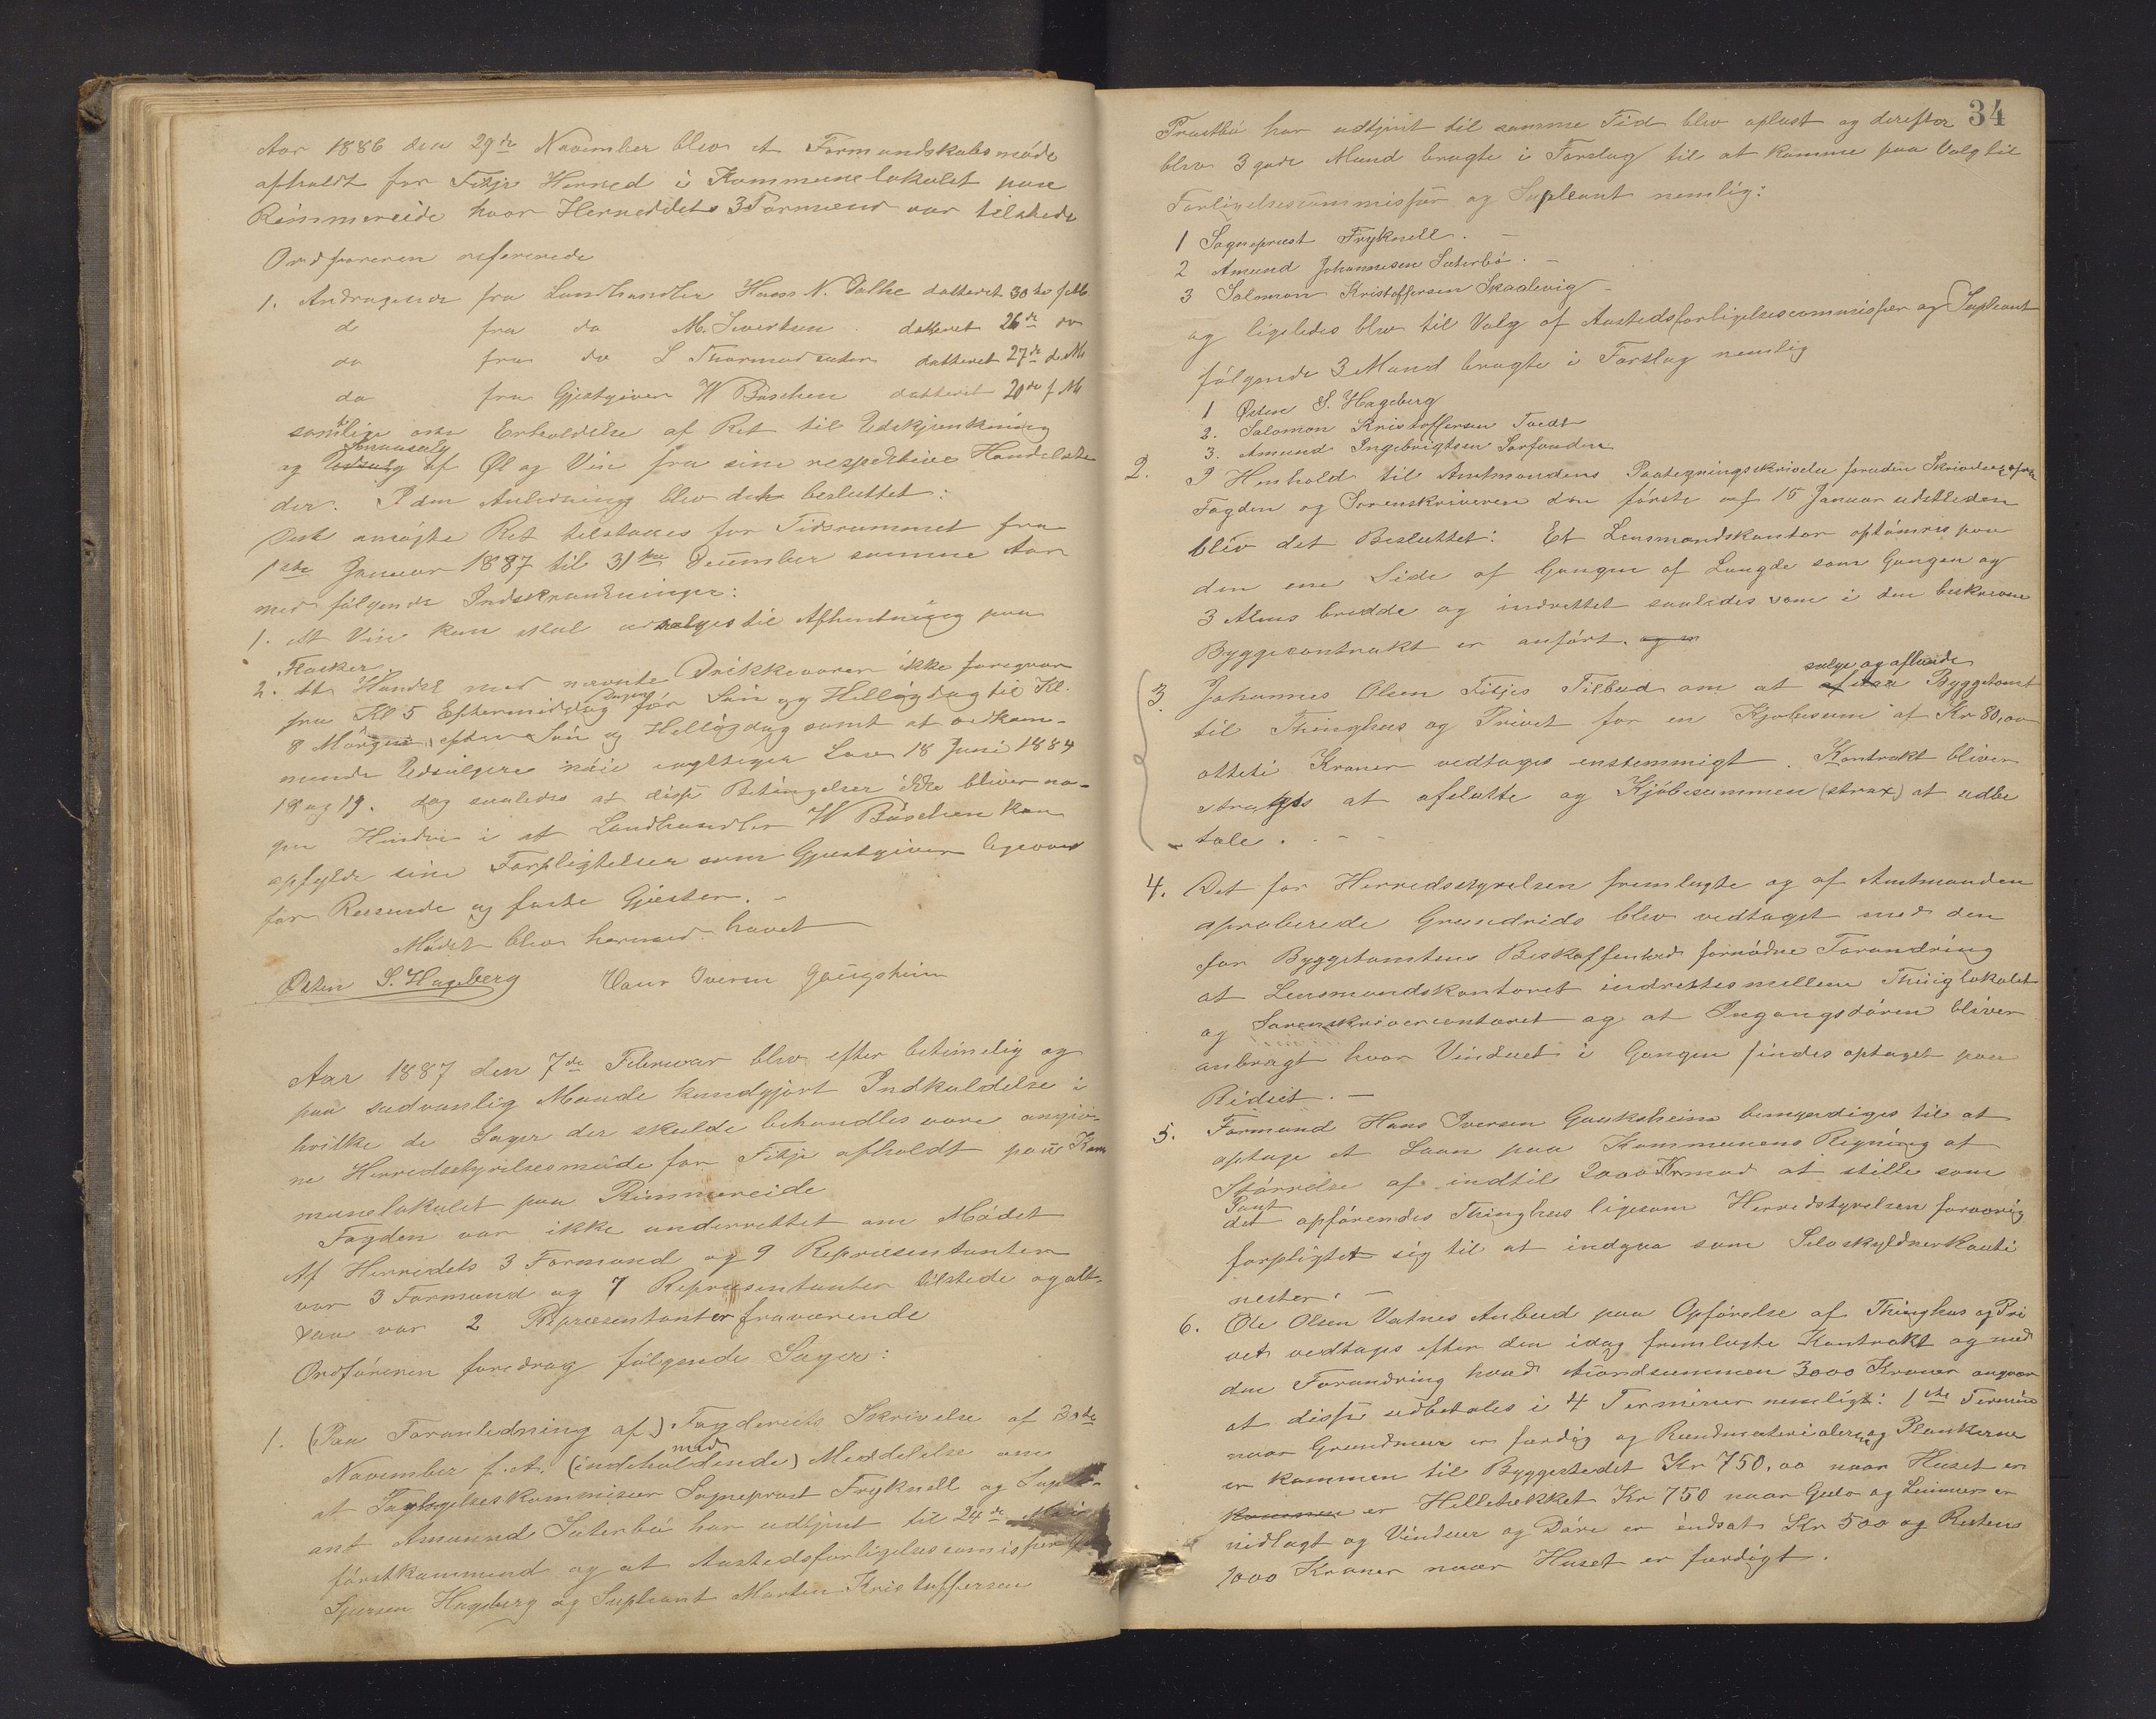 Aar 1886 den 29de November blev et Formandskabsmöde
afholdt for Fitje Herred i Kommunelokalet paa
Rimmereide hvor Herredets 3 Formænd var tilstede
Ordföreren refererede
1. Andragende fra Landhandler Hans N. Dalke datteret 30te f.M.
do fra do M. Sivertsen datteret 26de do
do fra do L Thormodsæter datteret 27de d. M
do fra Gjestgiver W Büschen datteret 20de f M
samtlige om Erholdelse af Ret til Udskjænkning
og Smaasalg af Øl og Vin fra sine respektive Handelsste
der. I den Anledning blev det besluttet:
Den ansögte Ret tilstaaes for Tidsrummet fra
1ste Januar 1887 til 31te December samme Aar
med fölgende Indskrænkninger:
1. At Vin kun skal udsælges til Afhentning paa
Flasker.
2. At Handel med nævnte Drikkevarer ikke foregaar
fra Kl 5 Eftermiddag Dagen för Sön og Helligdag til Kl.
8 Morgen efter Sön og Helligdag samt at vedkom-
mende Udsælgere nöie iagttager Lov 18 Juni 1884
18 og 19. dog saaledes at disse Betingelser ikke bliver no-
gen Hinder i at Landhandler W Büschen kan
opfylde sine Forpligtelser som Gjestgiver ligeoverfor
for Reisende og faste Gjæster. -
Mödet blev hermed hævet
Østen S. Hageberg Hans Iversen Gaugsheim
Aar 1887 den 7de Februar blev efter betimelig og
paa sædvanlig Maade kundgjort Indkaldelse i
hvilke de Sager der skulde behandles vare angiv-
ne Herredsstyrelsesmöde for Fitje afholdt paa Kom
munelokalet paa Rimmereide
Fogden var ikke underrettet om Mödet
Af Herredets 3 Formænd og 9 Repræsentanter
var 3 Formænd og 7 Repræsentanter tilstede og alt-
saa var 2 Repræsentanter fraværende
Ordföreren foredrog fölgende Sager:
1. (Paa Foranledning af) Fogderiets Skrivelse af 3die
November f. A. (indeholdende) med Meddelelse om
at Forligelseskommisær Sogneprest Fryknell og Suple-
ant Amund Sæterbö har udtjent til 24de
förstkommend og at Aastedsforligelsescomissær
Sjursen Hageberg og Supleant Morten Kristoffersen
34
Prestbö har udtjent til samme Tid blev oplæst og derefter
blev 3 gode Mænd bragte i Forslag til at komme paa Valg til
Forligelsescommissær og Supleant nemlig:
1 Sogneprest Fryknell. -
2 Amund Johannesen Sæterbö. -
3 Salomon Kristoffersen Skaalevig -
og ligeledes blev til Valg af Aastedsforligelsescommissær og Supleant
fölgende 3 Mænd bragte i Forslag nemlig
1 Østen S. Hageberg
2. Salomon Kristoffersen Tvedt
3. Amund Ingebrigtsen Sørfonden
2. I Henhold til Amtmandens Paategningsskrivelse foruden Skrivelse fra
Fogden og Sorenskriveren den förste af 15 Januar udstleden
blev det Besluttet: Et Lensmandskontor optömres paa
den ene Side af Gangen af Længde som Gangen og
3 Alens bredde og indrettet saaledes som i den beskrevne
Byggecontrakt er anfört. og er
3. Johannes Olsen Fitjes Tilbud om at sælge og aflade Byggetomt
til Thinghus og Privet for en Kjøbesum af Kr 80,00
otteti Kroner vedtages enstemmigt. Kontrakt bliver
strags at afslutte og Kjöbesummen (strax) at udbe
tale. - -
4. Det for Herredsstyrelsen fremlagte og af Amtmanden
aproberede Grundrids blev vedtaget med den
for Byggetomtens Beskaffenhed fornödne Forandring
at Lensmandskontoret indrettes mellem Thinglokalet
og Sorenskrivercontoret og at Ingangsdören bliver
anbragt hvor Vinduet i Gangen findes optaget paa
Ridset. -
5. Formand Hans Iversen Gauksheim bemyndiges til at
optage et Laan paa Kommunens Regning af
Störrelse af indtil 2000 Kr mod at stille som
Pant
det opförendes Thinghus ligesom Herredstyrelsen forövrig
forpligtet sig til at indgaa som Selvskyldnerkauti
nester. -
6. Ole Olsen Vatnes Anbud paa Opförelse af Thinghus og Pri
vet vedtages efter den idag fremlagte Kontrakt og med
den Forandring hvad Akordsummen 3000 Kroner angaar
at disse udbetales i 4 Terminer nemligt: 1ste Termin
naar Grundmur er færdig og Raadmaterialerne og Plankerne
er kommen til Byggestedet Kr 750,00 naar Huset er
kommen er Helletækket Kr 750 naar Gulv og Lemmer er
nidlagt og Vinduer og Döre er indsat Kr 500 og Resten
1000 Kroner naar Huset er færdigt.